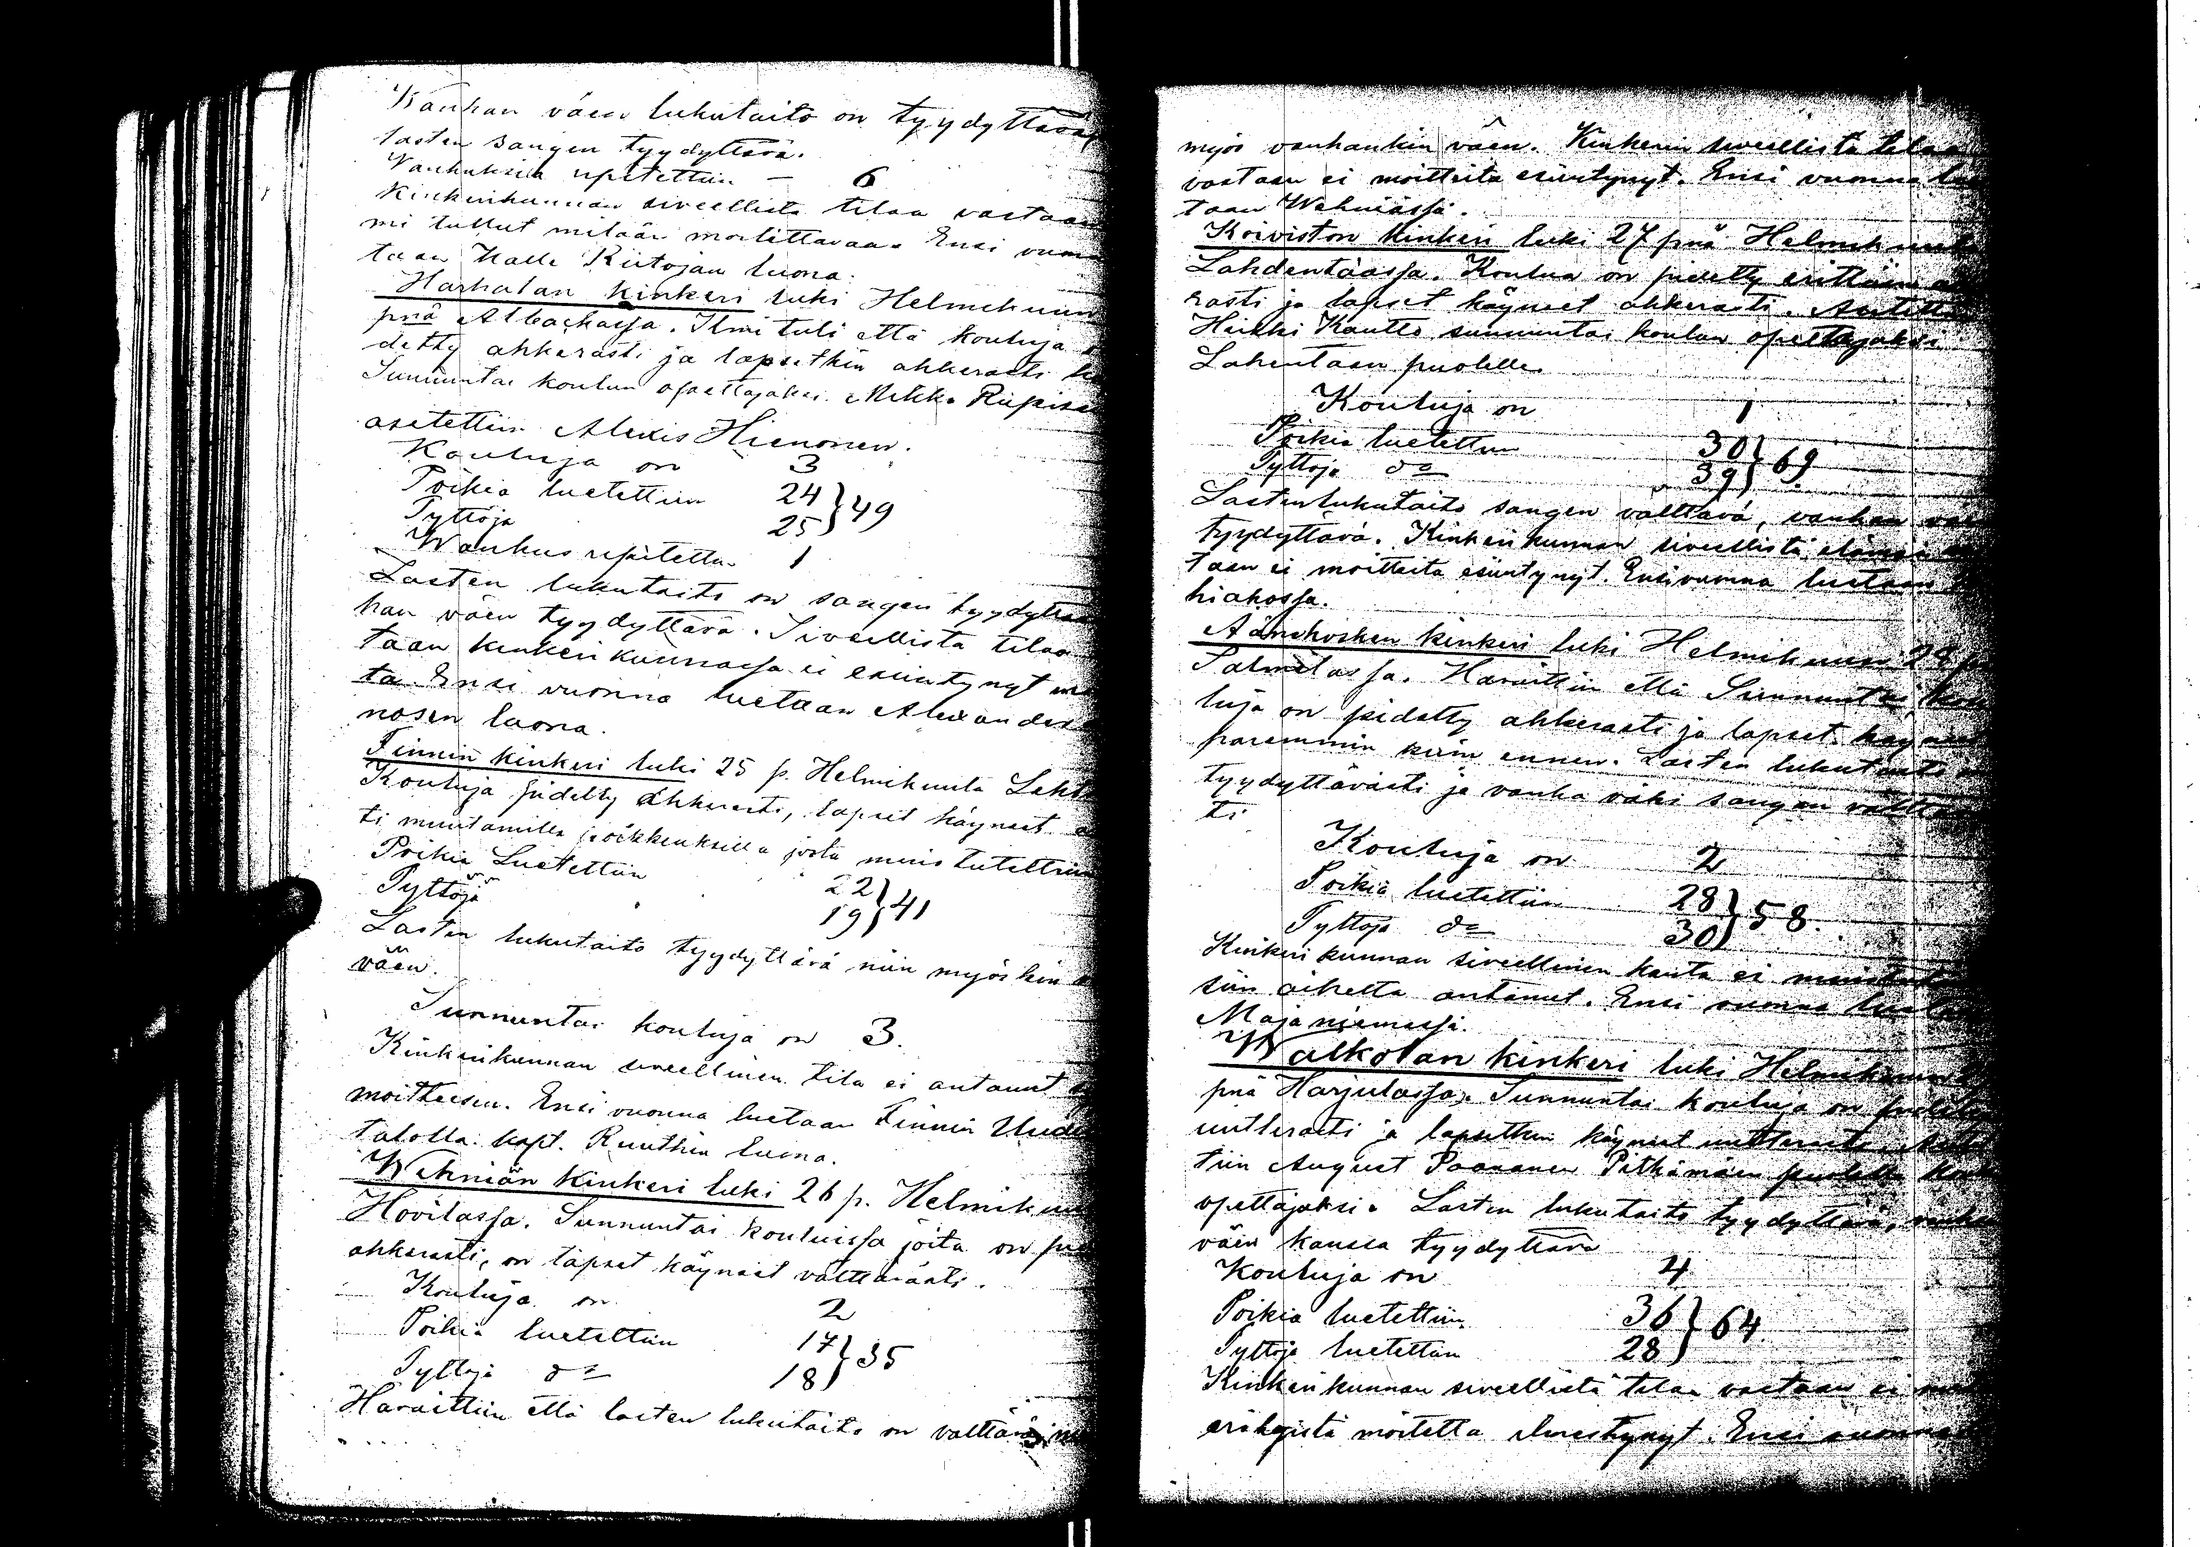 Wanhan väen lukutaito on tyydyttävä,
lasten sangen tyydyttävä.
Wanhuksia ripitettiin – 6
Kinkerikunnan siveellistä tilaa vastaan
ei tullut mitään moitittavaa. Ensi vuonna
taan Kalle Riitojan luona.
Harkalan kinkeri luki Helmikuun
pnä Albackassa. Ilmi tuli että kouluja
detty ahkerasti ja lapsetkin ahkerasti
Sunnuntai koulun opettajaksi
asetettiin Alexis Hienonen.
Kouluja on 3
Poikia luetettiin 24 } 49
Tyttöjä 25
Wanhus ripitettiin 1
Lasten lukutaito on sangen tyydyttävä
han väen tyydyttävä. Siveellistä tilaa
taan kinkerikunnassa ei esiintynyt
ta. Ensi vuonna luetaan
nosen luona.
Finnin kinkeri luki 25 p. Helmikuuta
Kouluja pidetty ahkerasti, lapset käyneet
ti muutamilla poikkeuksilla joita muistutettiin
Poikia Luetettiin 22 } 41
Tyttöjä 19
Lasten lukutaito tyydyttävä niin myöskin
väen.
Sunnuntai kouluja on 3.
Kinkerikunnan siveellinen tila ei antanut
moitteesen. Ensi vuonna luetaan Finnin
talolla kapt. Ruuthin luona.
Wehniän kinkeri luki 26 p. Helmikuuta
Hovilassa. Sunnuntai kouluissa joita on
ahkerasti, on lapset käyneet välttävästi.
Kouluja on 2
Poikia luetettiin 17 } 35
Tyttöjä do 18
Havaittiin että lasten lukutaito on välttävä,
myös vanhankin väen. Kinkerin siveellistä tilaa
vastaan ei moitteita esiintynyt. Ensi vuonna
taan Wehniässä.
Koiviston kinkeri luki 27 pnä Helmikuuta
Lahdentaassa. Koulua on pidetty erittäin
rasti ja lapset käyneet ahkerasti. Asetettiin
Heikki Kautto sunnuntai koulun opettajaksi
Lahentaan puolelle.
Kouluja on 1
Poikia luetettiin 30 } 69
Tyttöjä do 39
Lasten lukutaito sangen välttävä, vanhan väen
tyydyttävä. Kinkerikunnan siveellistä elämää
taan ei moitteita esiintynyt. Ensi vuonna luetaan
hiahossa.
Äänekosken kinkeri luki Helmikuun 28
Salmelassa. Havaittiin että Sunnuntai kou
luja on pidetty ahkerasti ja lapset käyneet
paremmin kuin ennen. Lasten lukutaito
tyydyttävästi ja vanha väki sangen välttävä
ti
Kouluja on 2
Poikia luetettiin 28 } 58.
Tyttöjä do 30
Kinkerikunnan siveellinen kanta ei muistutuk
siin aihetta antanut. Ensi vuonna luetaan
Majaniemessä.
Walkolan kinkeri luki Helmikuun
pnä Harjulassa. Sunnuntai kouluja on pidetty
uutterasti ja lapsetkin käyneet uutterasti.
tiin August Paananen Pitkämäen puolelle
opettajaksi. Lasten lukutaito tyydyttävä, vanhan
väen kanssa tyydyttävä
Kouluja on 4
Poikia luetettiin 36 } 64
Tyttöjä luetettiin 28
Kinkerikunnan siveellistä tilaa vastaan ei
erityistä moitetta ilmestynyt. Ensi vuonna